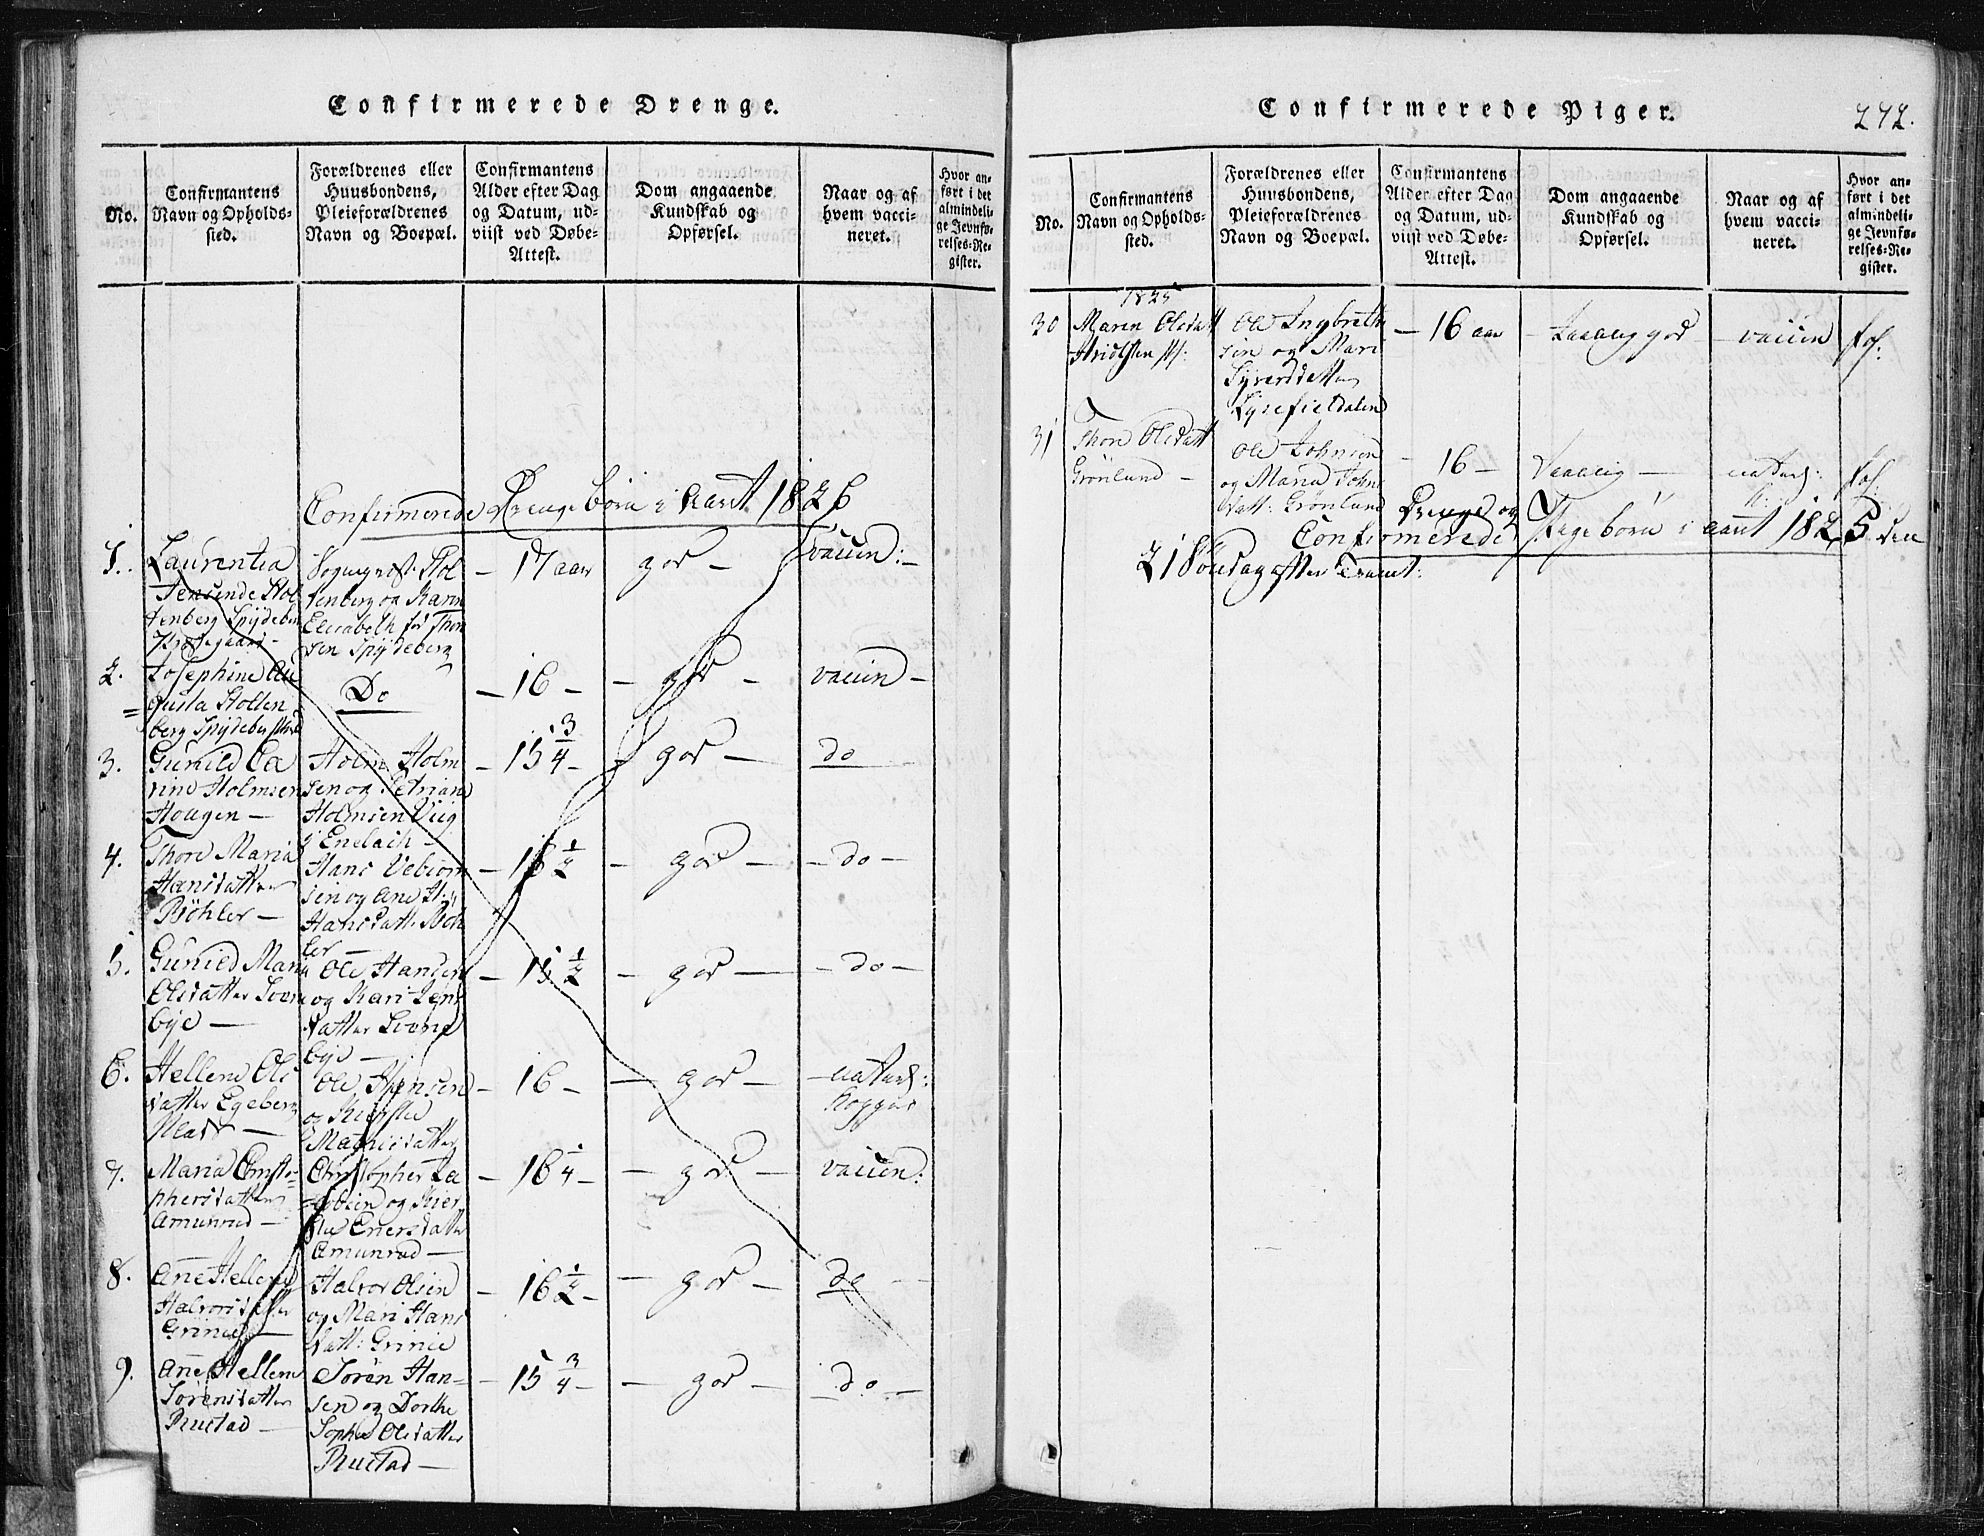 Confirmerede Drenge.
No.
Confirmantens
Navn og Opholds-
sted.
Forældrenes eller
Huusbondens,
Pleieforældrenes
Navn og Boepæl.
Confirmantens
Alder efter Dag
og Datum, ud-
viist ved Døbe-
Attest.
Dom angaaende
Kundskab og
Opførsel.
Naar og af
hvem vacci-
neret.
Hvor an-
ført i det
almindeli-
ge Jevnfø-
relses-Re-
gister.
Confirmerede Drenge börn i Aaret 1826
1. Laurentia
Stol
tenberg Spydeberg
Præstegaard
Sogneprest Stol
tenberg og Karen
Elisabeth föd Thom
sen Spydeberg
- 17 aar
god -
vaccin: -
2. Josephine Au
gusta Stolten
berg Spydeb:
Do
- 16 -
- god -
vaccin -
3. Gunild Ca
rine Holmsen
Hougen -
Holm Holm
sen og Petriane
Holmsen Viig
i Enebach -
- 15 3/4 -
- god -
do
4. Thore Maria
Hansdatter
Böhler -
Hans Vebiörn
sen og Ane
Hansdatt: Böh
ler -
- 16 1/2
- god -
- do -
5. Gunild Maria
Olsdatter
bye -
Ole Hansen
og Kari Jens
datter
bye -
- 15 1/2
- god -
- do -
6. Hellene Ols
datter Egeberg
Plads -
Ole Jensen
og Kirstie
Mathisdatter
- 16 -
- god -
- naturl:
Kopper
7. Maria Christo-
phersdatter
Amunrud -
Christopher Ja
cobsen og Kier
stie Enersdatter
Amunrud -
- 16 1/4 -
- god -
vaccin:
8. Ane Hellene
Halvorsdatter
Grinie -
Halvor Olsen
og Mari Hans
datt: Grinie
- 16 1/2 -
- god -
do
9. Ane Hellene
Sörensdatter
Rustad -
Sören Han-
sen og Dorthe
Sophie Olsdatter
Rustad -
- 15 3/4 -
- god -
- do -
Confirmerede Piger.
242.
No.
Confirmantens
Navn og Opholds-
sted.
Forældrenes eller
Huusbondens,
Pleieforældrenes
Navn og Boepæl.
Confirmantens
Alder efter Dag
og Datum, ud-
viist ved Døbe-
Attest.
Dom angaaende
Kundskab og
Opførsel.
Naar og af
hvem vacci-
neret.
Hvor an-
ført i det
almindeli-
ge Jevnfø-
relses-Re-
gister.
1825
30 Maren Olsdatt
Ole Ingbreth
sen og Mari
Syversdatter
Lysefieldalen
- 16 aar
- god
- vaccin
fol:
31 Thore Olsdatt
Grönlund -
Ole Johnsen
og Maria John
datt: Grönlund
- 16 -
Maadelig -
naturl:
fol.
Drenge og
Confirmerede Pigebörn i Aaret 1825 den
21 Söndag efter Trinit: